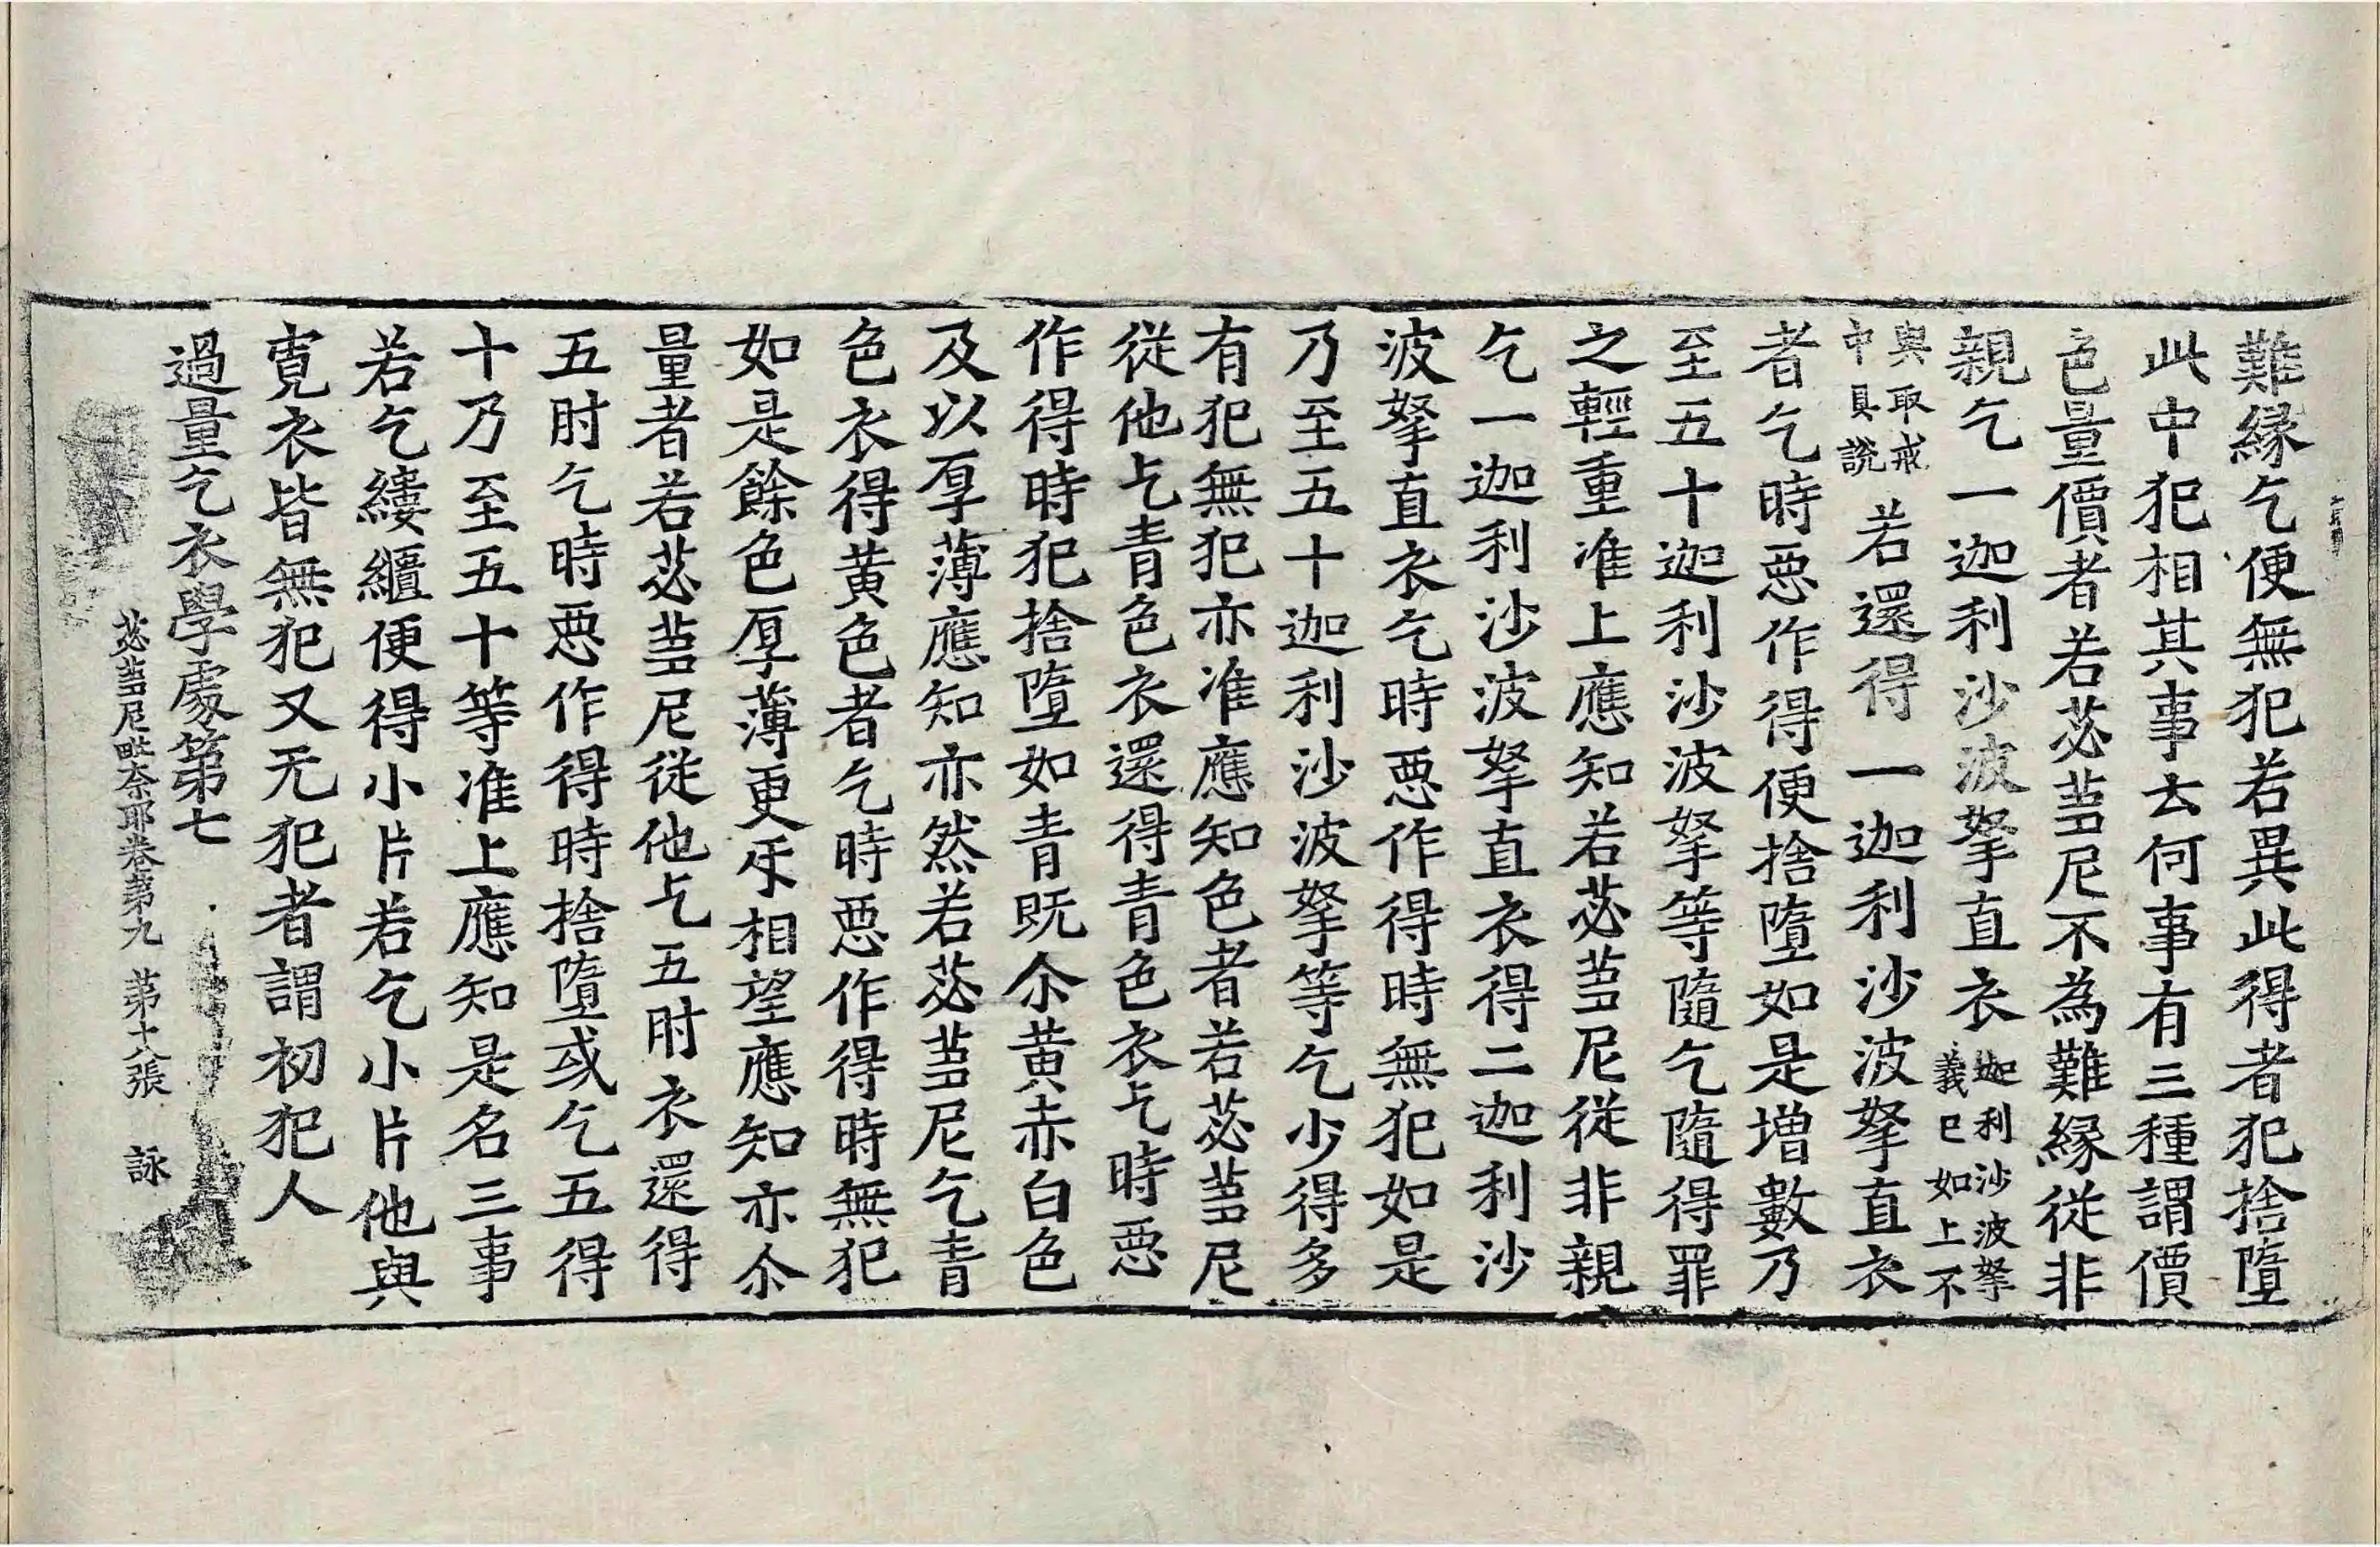 難緣乞便無犯若異此得者犯捨墮
此中犯相其事云何事有三種謂價
色量價者若苾蒭尼不為難緣從非
親乞一迦利沙波拏直衣迦利沙波拏義已如上不
與取戒中具說若還得一迦利沙波拏直衣
者乞時惡作得便捨墮如是增數乃
至五十迦利沙波拏等隨乞隨得罪
之輕重准上應知若苾蒭尼從非親
乞一迦利沙波拏直衣得二迦利沙
波拏直衣乞時惡作得時無犯如是
乃至五十迦利沙波拏等乞少得多
有犯無犯亦准應知色者若苾蒭尼
從他乞青色衣還得青色衣乞時惡
作得時犯捨墮如青既尒黄赤白色
及以厚薄應知亦然若苾蒭尼乞青
色衣得黄色者乞時惡作得時無犯
如是餘色厚薄更𠀤相望應知亦尒
量者若苾蒭尼從他乞五肘衣還得
五肘乞時惡作得時捨墮或乞五得
十乃至五十等准上應知是名三事
若乞縷繼便得小片若乞小片他與
寬衣皆無犯又无犯者謂初犯人
過量乞衣學處第七
苾蒭尼毗奈耶卷第九 第十八張 詠